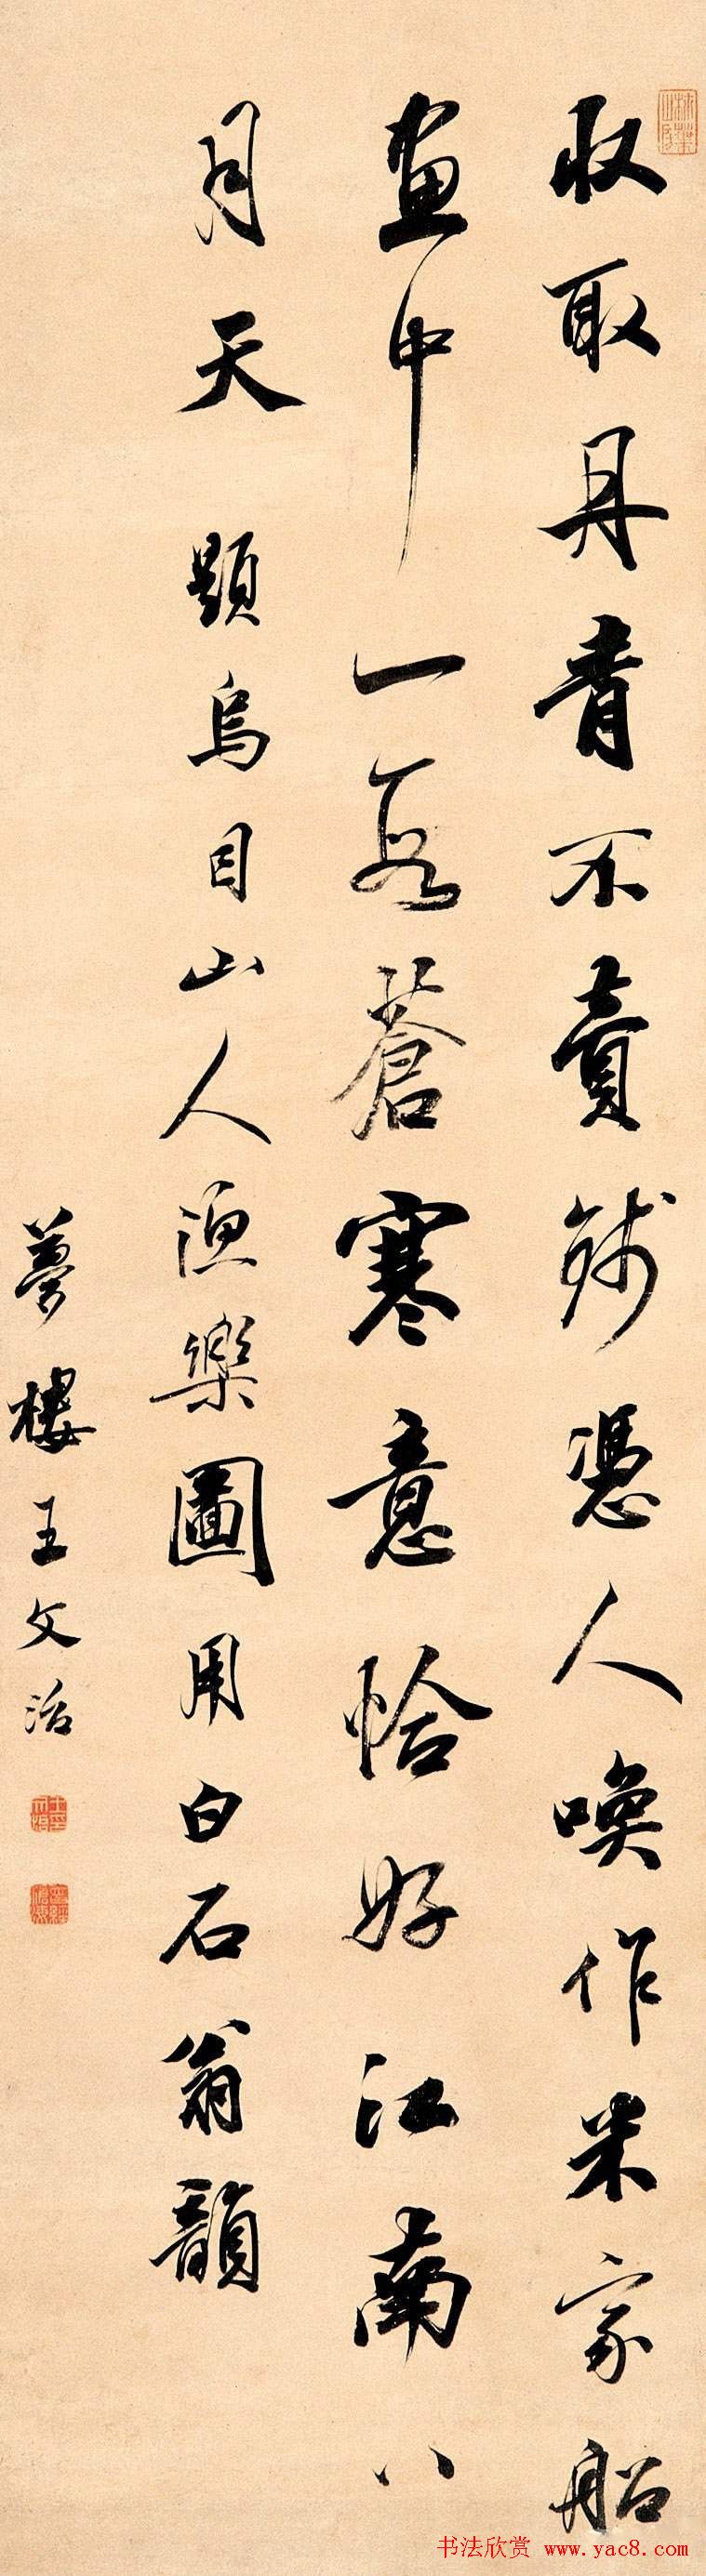 収取丹青不賣錢憑人喚作米家船
畫中一段蒼寒意恰好江南八
月天 題烏目山人漁樂圖用白石翁韻
夢樓王文治
书法欣赏 www.yac8.com